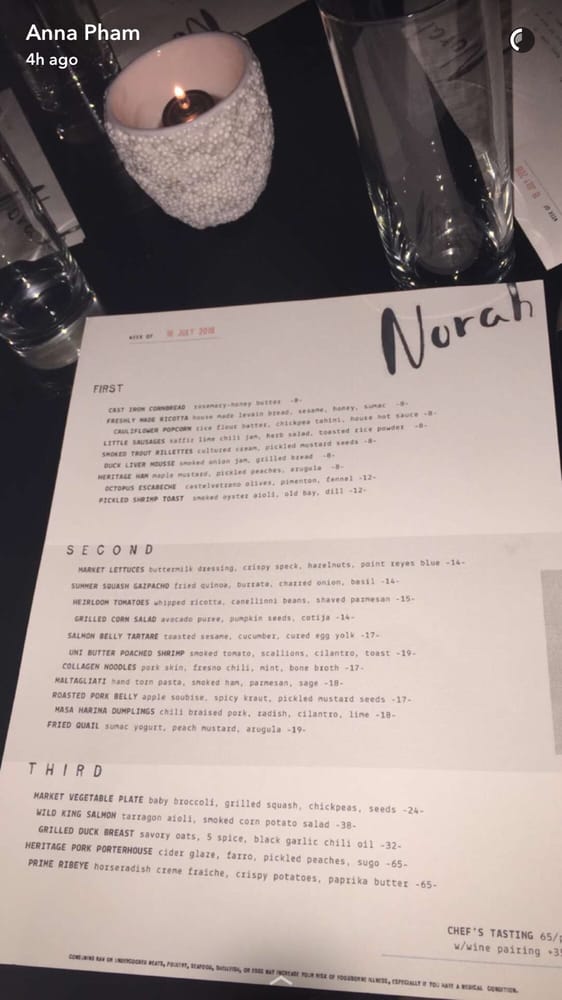 Anna Pham
4h ago
Norah
WEEK OF 18 JULY 2016
FIRST
CAST IRON CORNBREAD rosemary-honey butter -8-
FRESHLY MADE RICOTTA house made levain bread, sesame, honey, sumac -8-
CAULIFLOWER POPCORN rice flour batter, chickpea tahini, house hot sauce -8-
LITTLE SAUSAGES kaffir lime chili jam, herb salad, toasted rice powder -8-
SMOKED TROUT RILLETTES cultured cream, pickled mustard seeds -8-
DUCK LIVER MOUSSE smoked onion jam, grilled bread -8-
HERITAGE HAM maple mustard, pickled peaches, arugula -8-
OCTOPUS ESCABECHE castelvetrano olives, pimenton, fennel -12-
PICKLED SHRIMP TOAST smoked oyster aioli, old bay, dill -12-
SECOND
MARKET LETTUCES buttermilk dressing, crispy speck, hazelnuts, point reyes blue -14-
SUMMER SQUASH GAZPACHO fried quinoa, burrata, charred onion, basil -14-
HEIRLOOM TOMATOES whipped ricotta, canellinni beans, shaved parmesan -15-
GRILLED CORN SALAD avocado puree, pumpkin seeds, cotija -14-
SALMON BELLY TARTARE toasted sesame, cucumber, cured egg yolk -17-
UNI BUTTER POACHED SHRIMP smoked tomato, scallions, cilantro, toast -19-
COLLAGEN NOODLES pork skin, fresno chili, mint, bone broth -17-
MALTAGLIATI hand torn pasta, smoked ham, parmesan, sage -18-
ROASTED PORK BELLY apple soubise, spicy kraut, pickled mustard seeds -17-
MASA HARINA DUMPLINGS chili braised pork, radish, cilantro, lime -18-
FRIED QUAIL sumac yogurt, peach mustard, arugula -19-
THIRD
MARKET VEGETABLE PLATE baby broccoli, grilled squash, chickpeas, seeds -24-
WILD KING SALMON tarragon aioli, smoked corn potato salad -38-
GRILLED DUCK BREAST savory oats, 5 spice, black garlic chili oil -32-
HERITAGE PORK PORTERHOUSE cider glaze, farro, pickled peaches, sugo -65-
PRIME RIBEYE horseradish creme fraiche, crispy potatoes, paprika butter -65-
CHEF'S TASTING 65/p
w/wine pairing +35
CONSUMING RAW OR UNDERCOOKED MEATS, POULTRY, SEAFOOD, SHELLFISH, OR EGGS MAY INCREASE YOUR RISK OF FOODBORNE ILLNESS, ESPECIALLY IF YOU HAVE A MEDICAL CONDITION.